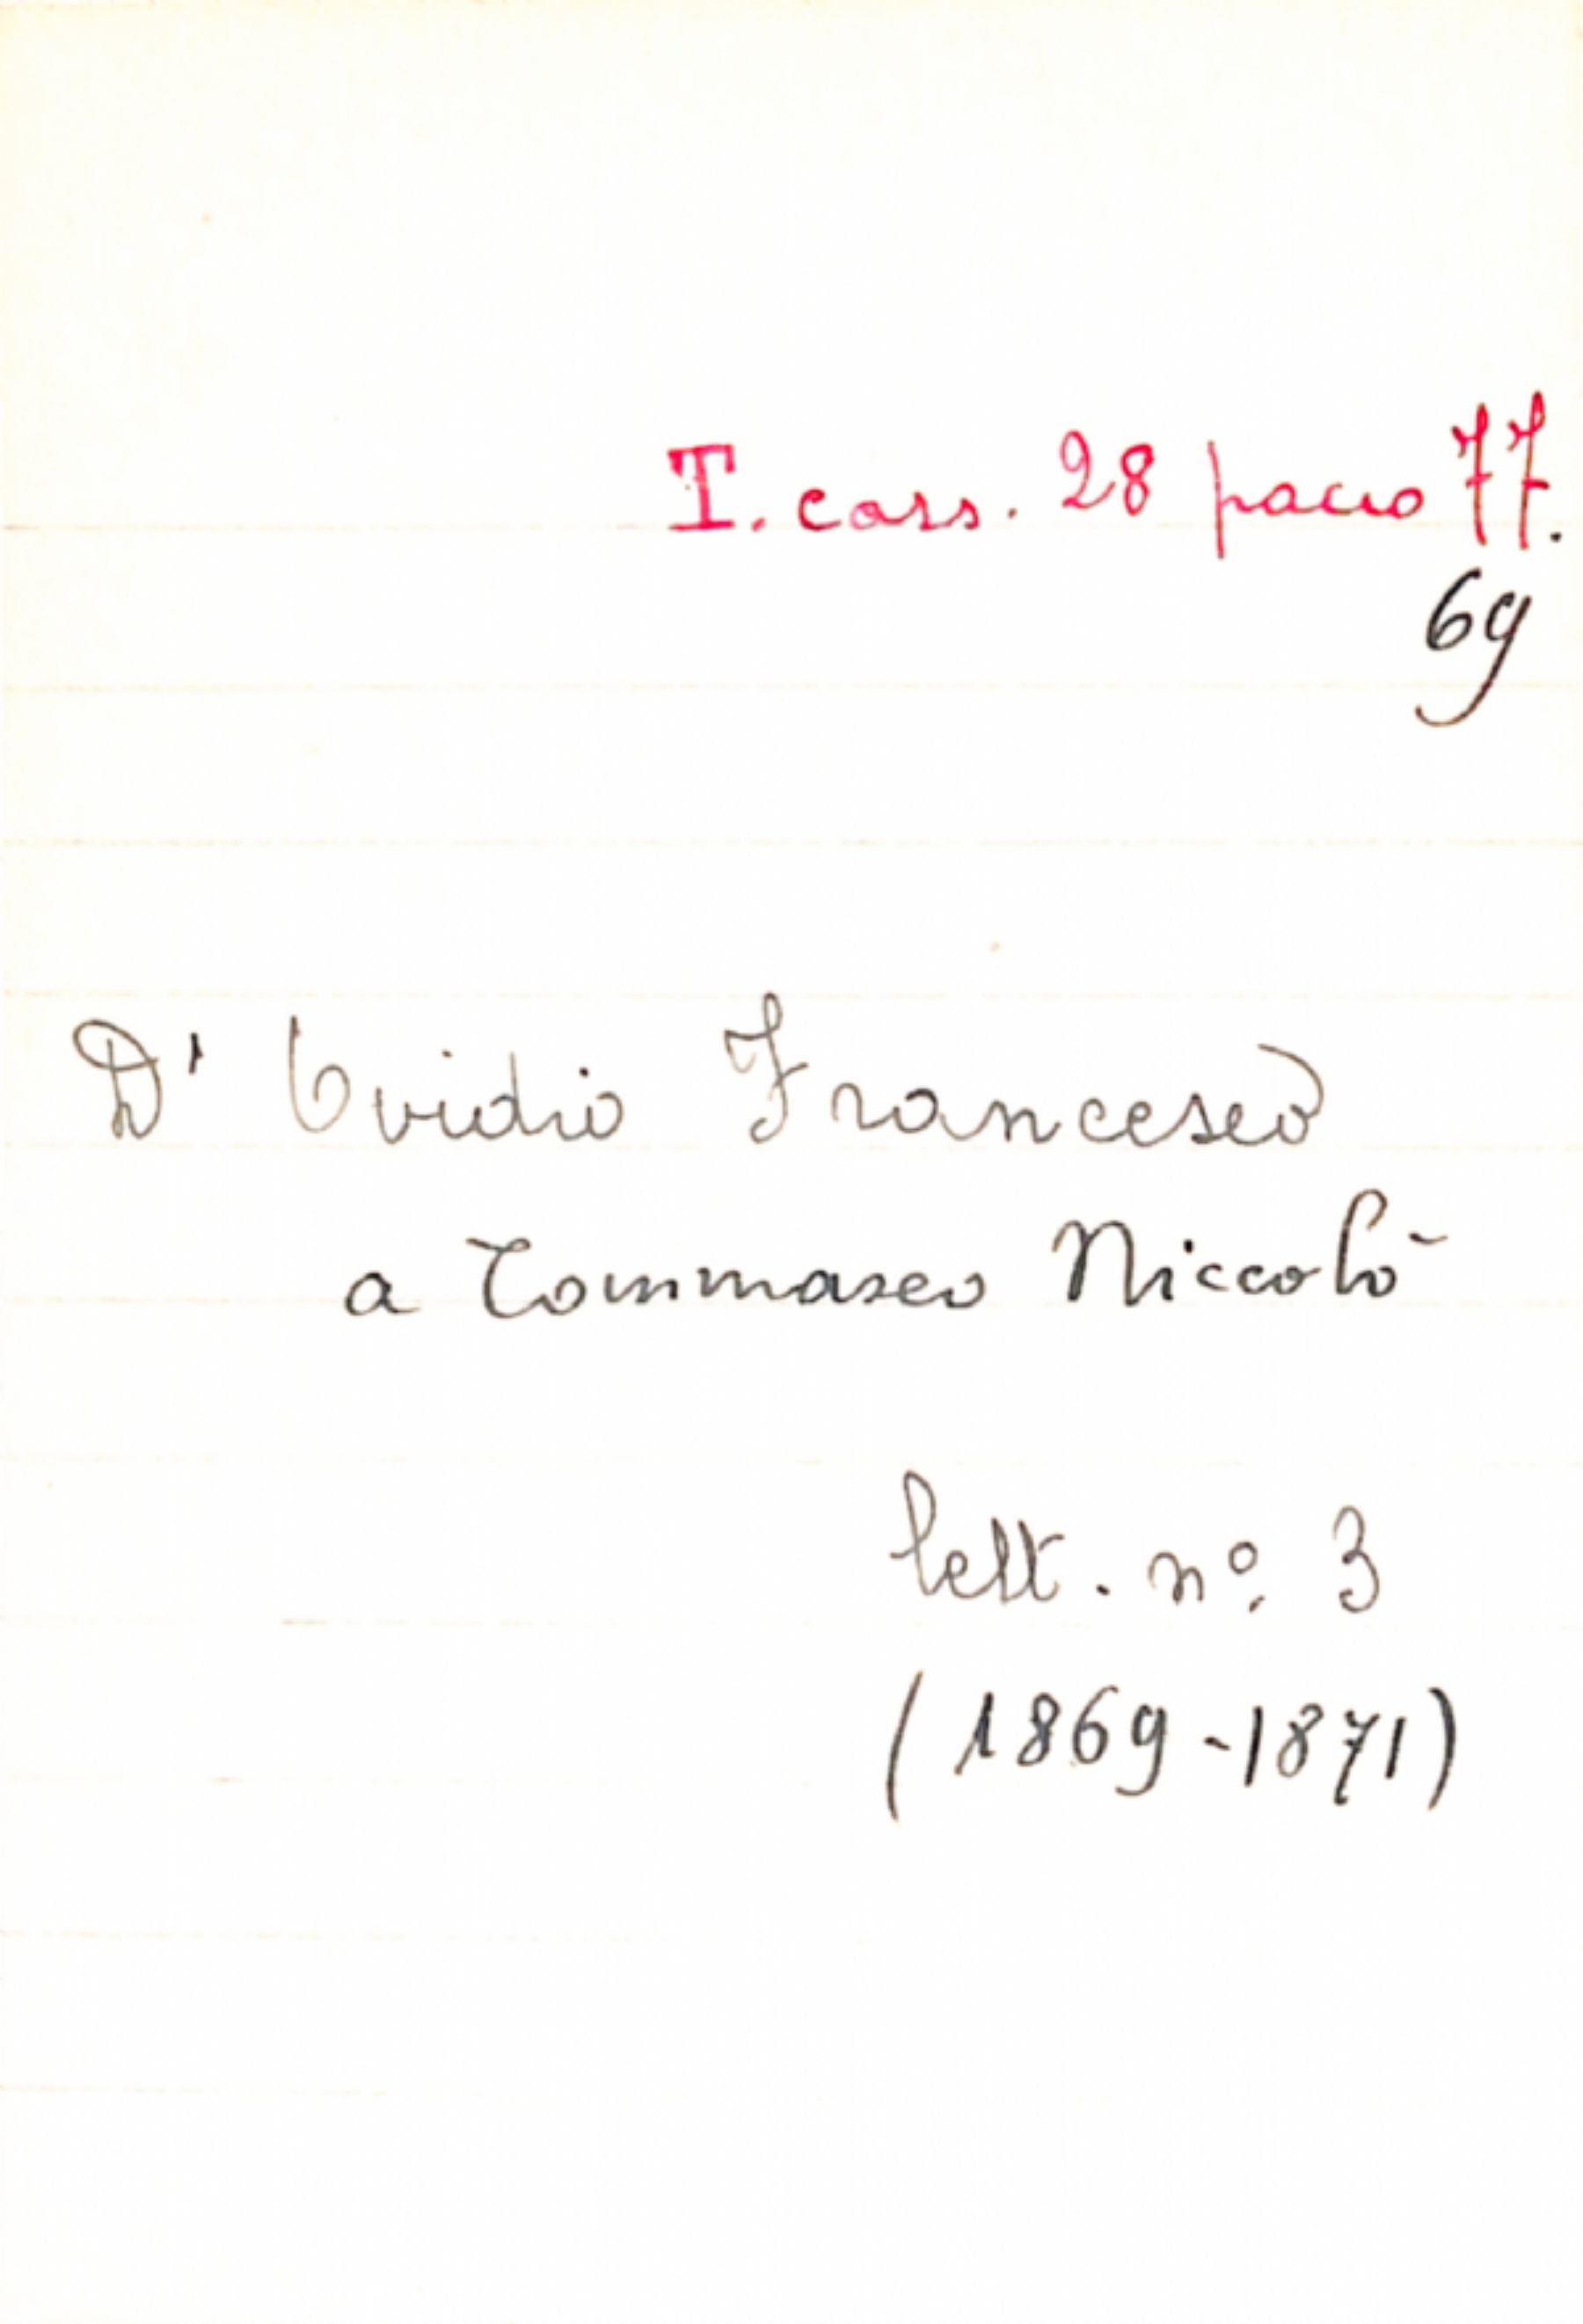 T. cass. 28 pacco 77.
69
D' Ovidio Francesco
a Tommaseo Niccolò
lett. nº. 3
(1869-1871)